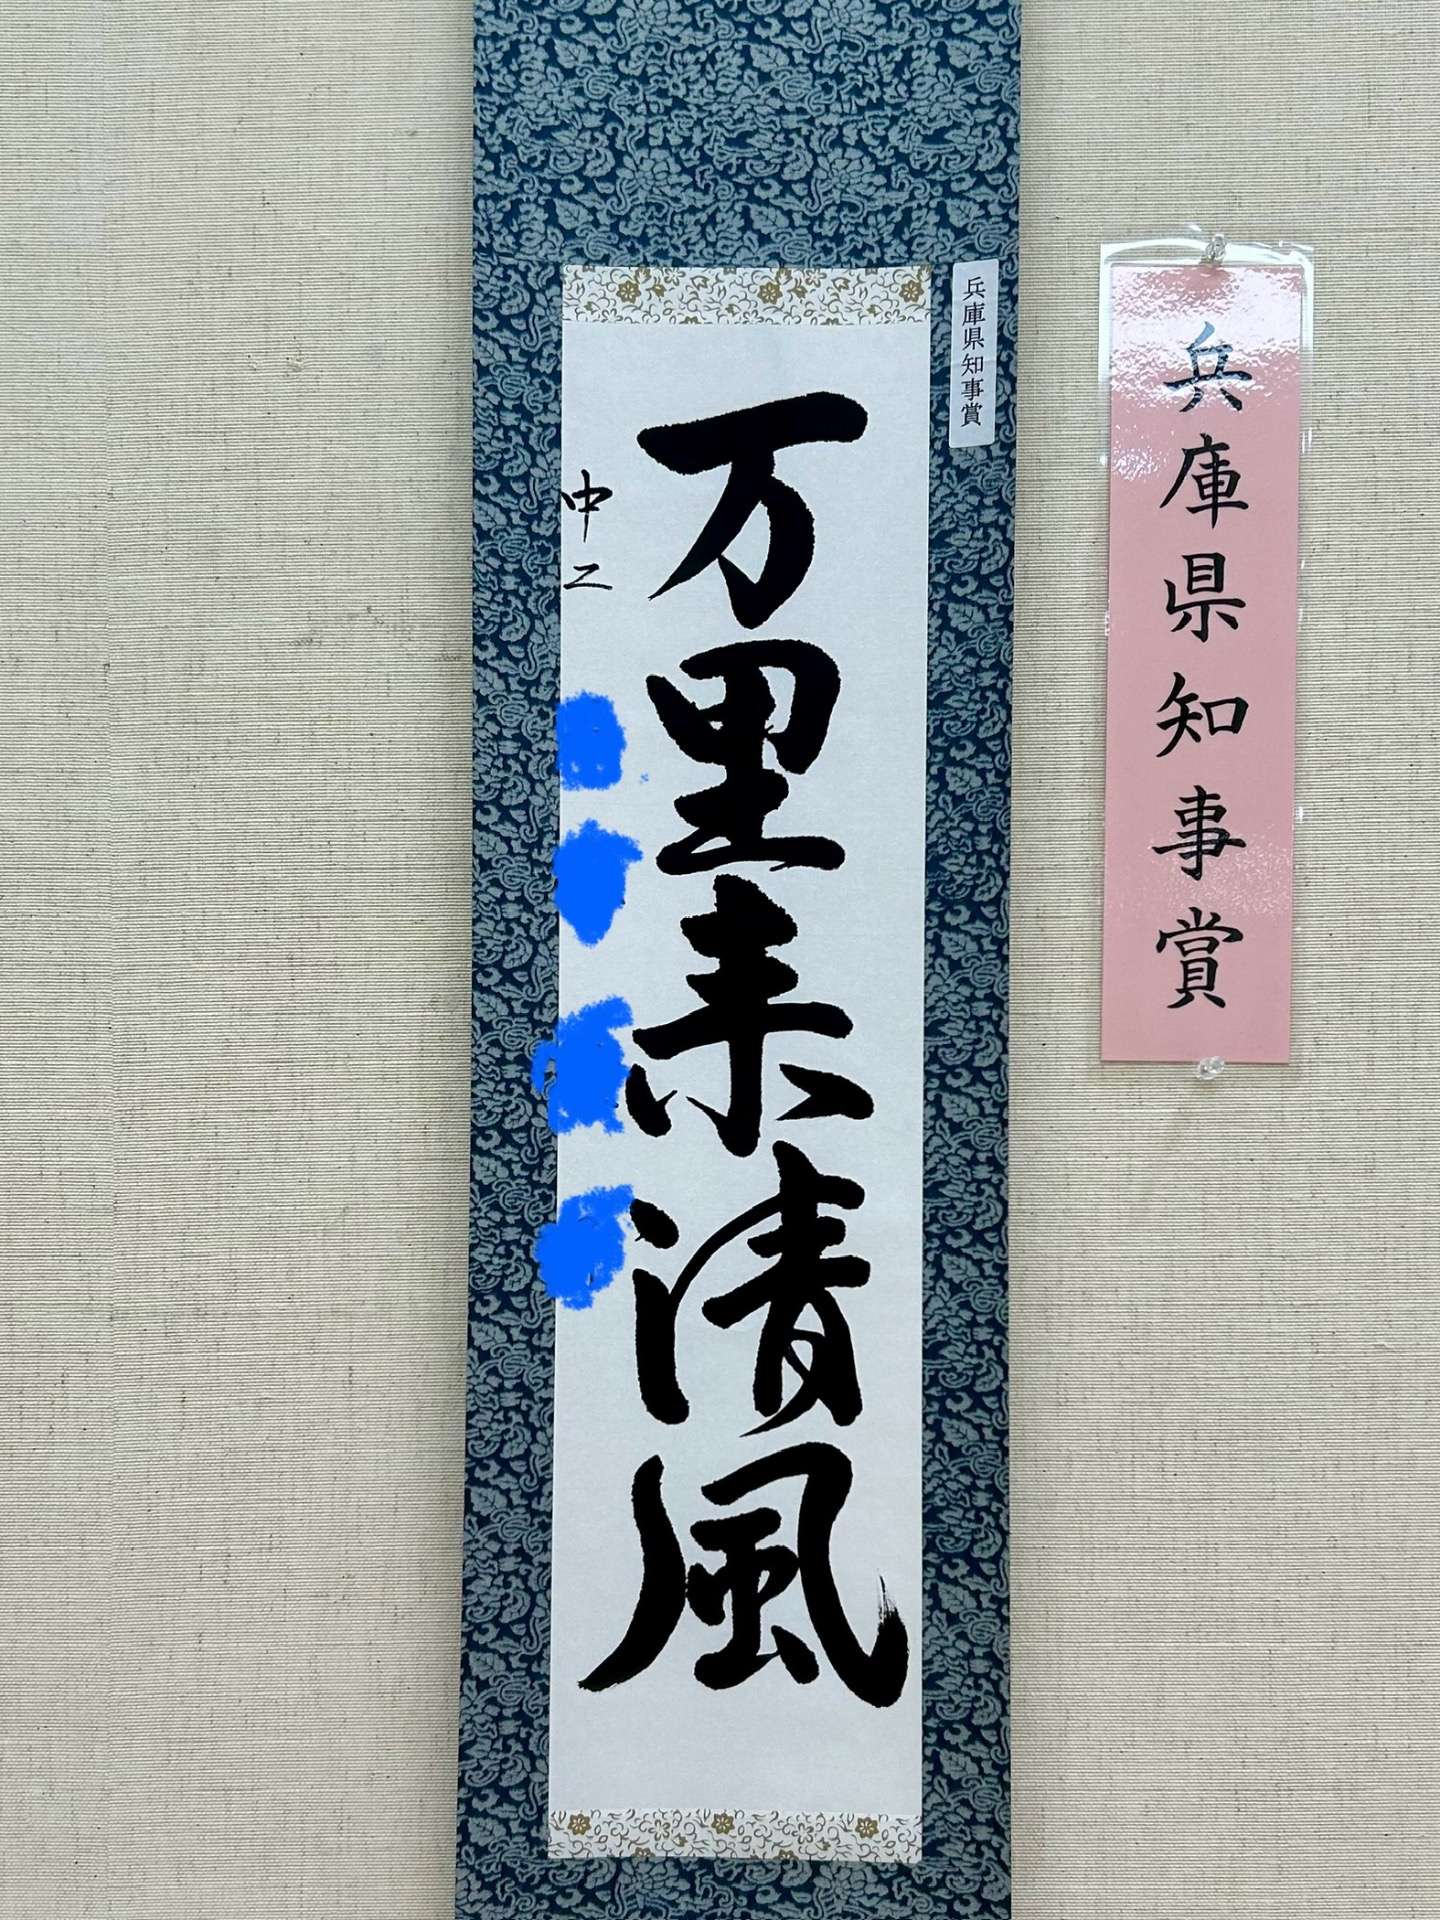 兵庫県知事賞
兵庫県知事賞
万里来清風
中二